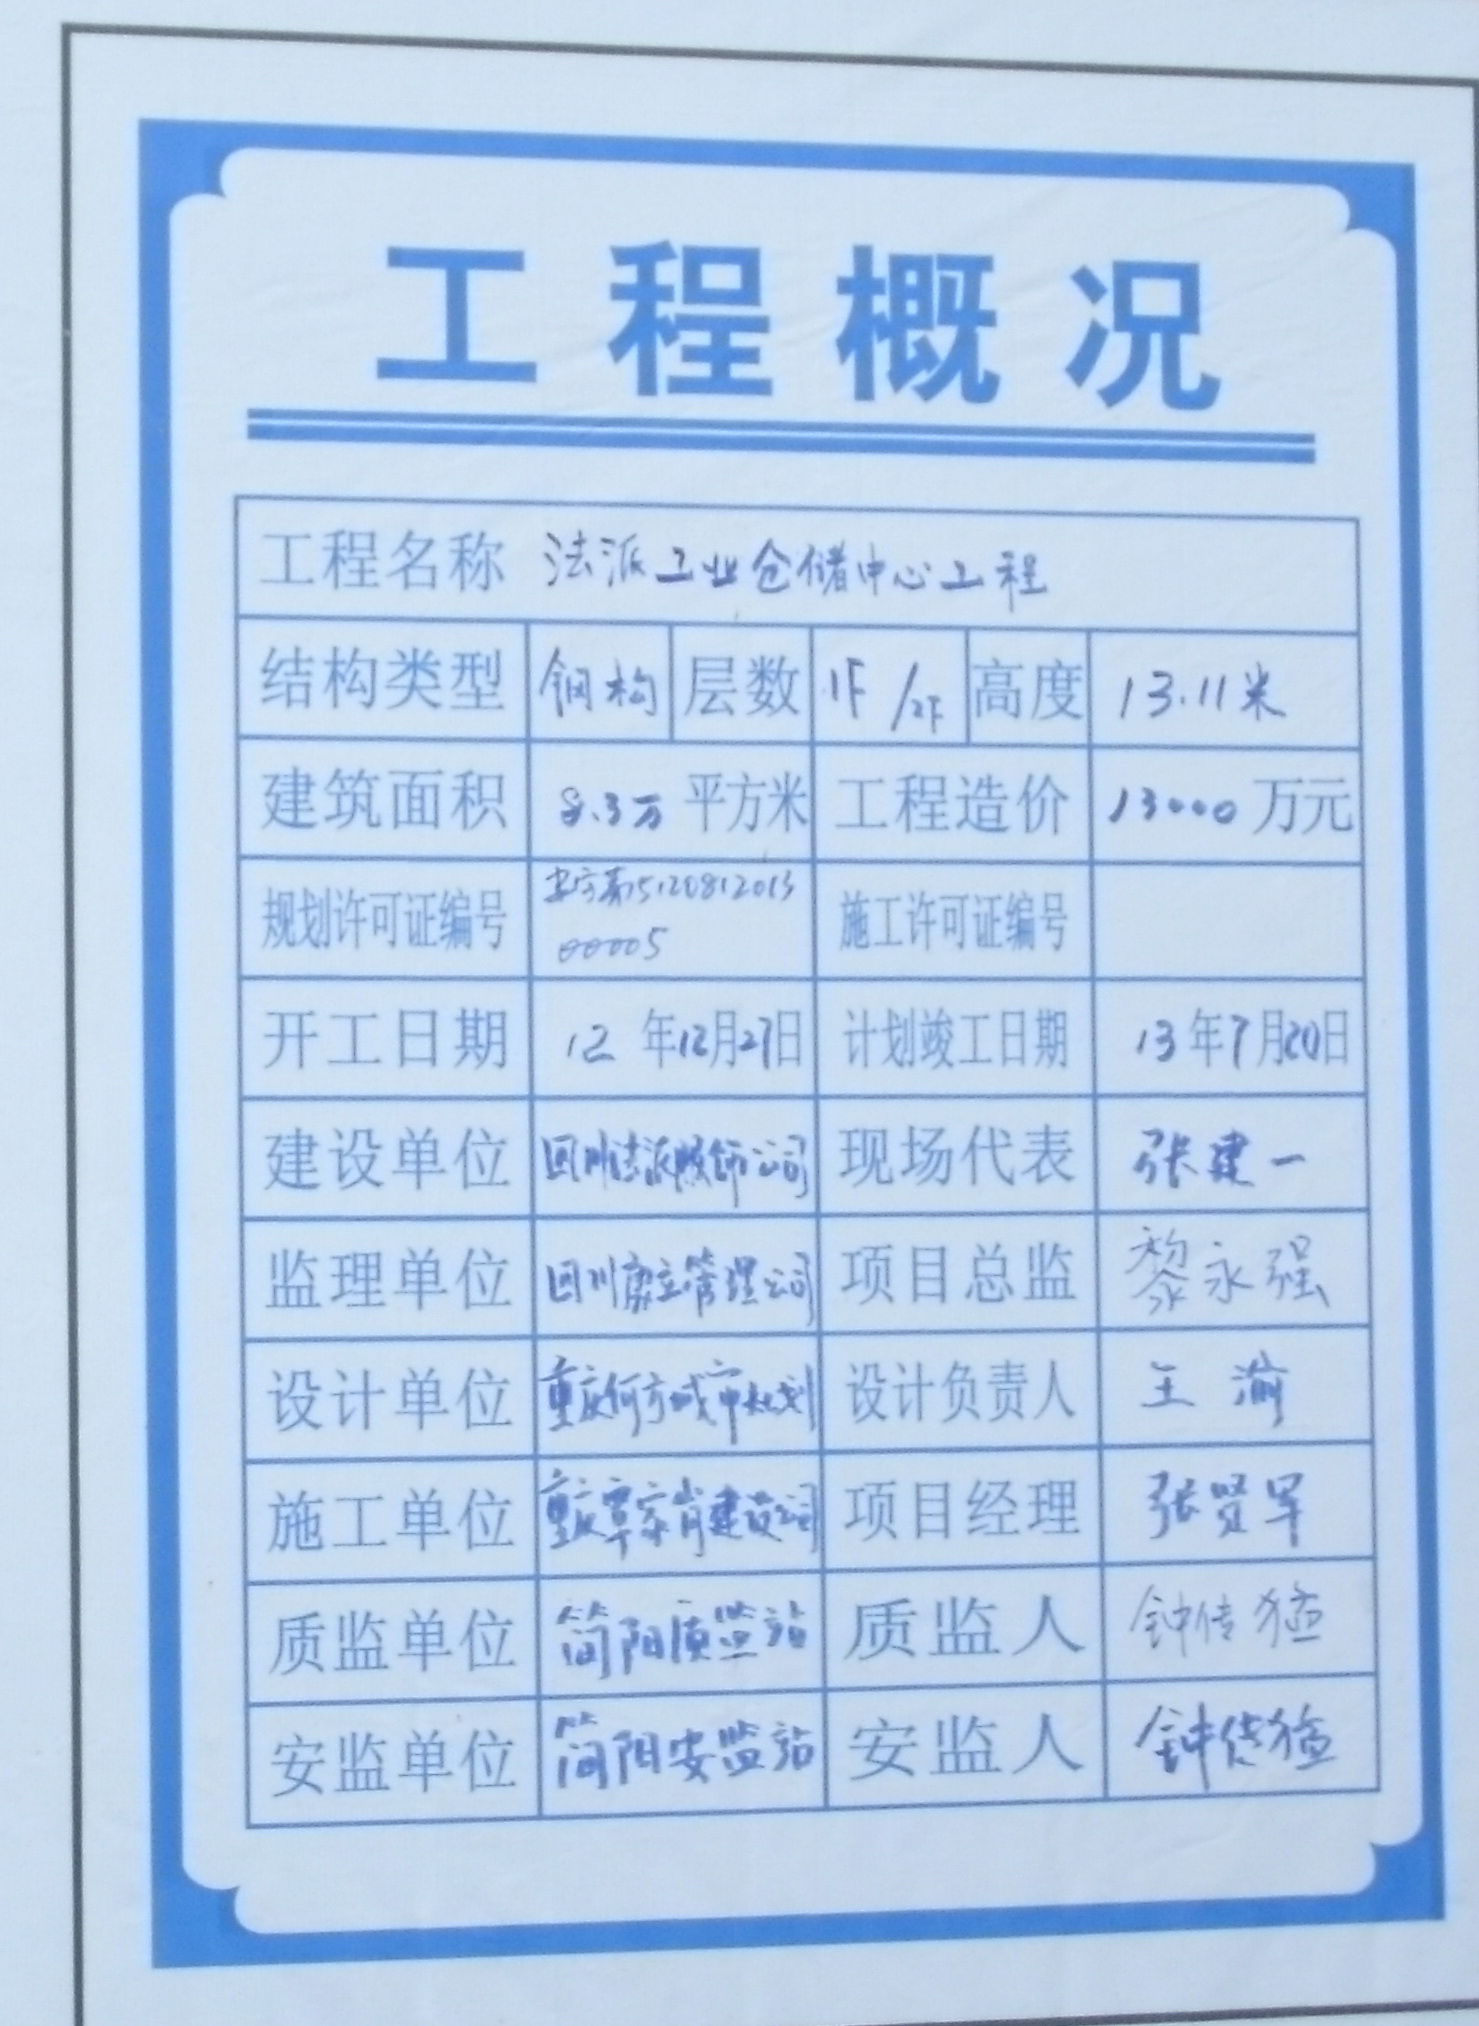 工程概况
工程名称 法派工业仓储中心工程
结构类型 钢构 层数 1F/2F 高度 13.11米
建筑面积 8.3万 平方米 工程造价 13000 万元
规划许可证编号 字第5120812013 施工许可证编号
00005
开工日期 12 年12月27日 计划竣工日期 13年7月20日
建设单位 四川法派服饰公司 现场代表 张建一
监理单位 四川康立管理公司 项目总监 黎永强
设计单位 重庆何方城市规划 设计负责人 王渝
施工单位 重庆 建设公司 项目经理 张贤军
质监单位 简阳质监站 质监人 钟传猛
安监单位 简阳安监站 安监人 钟传猛